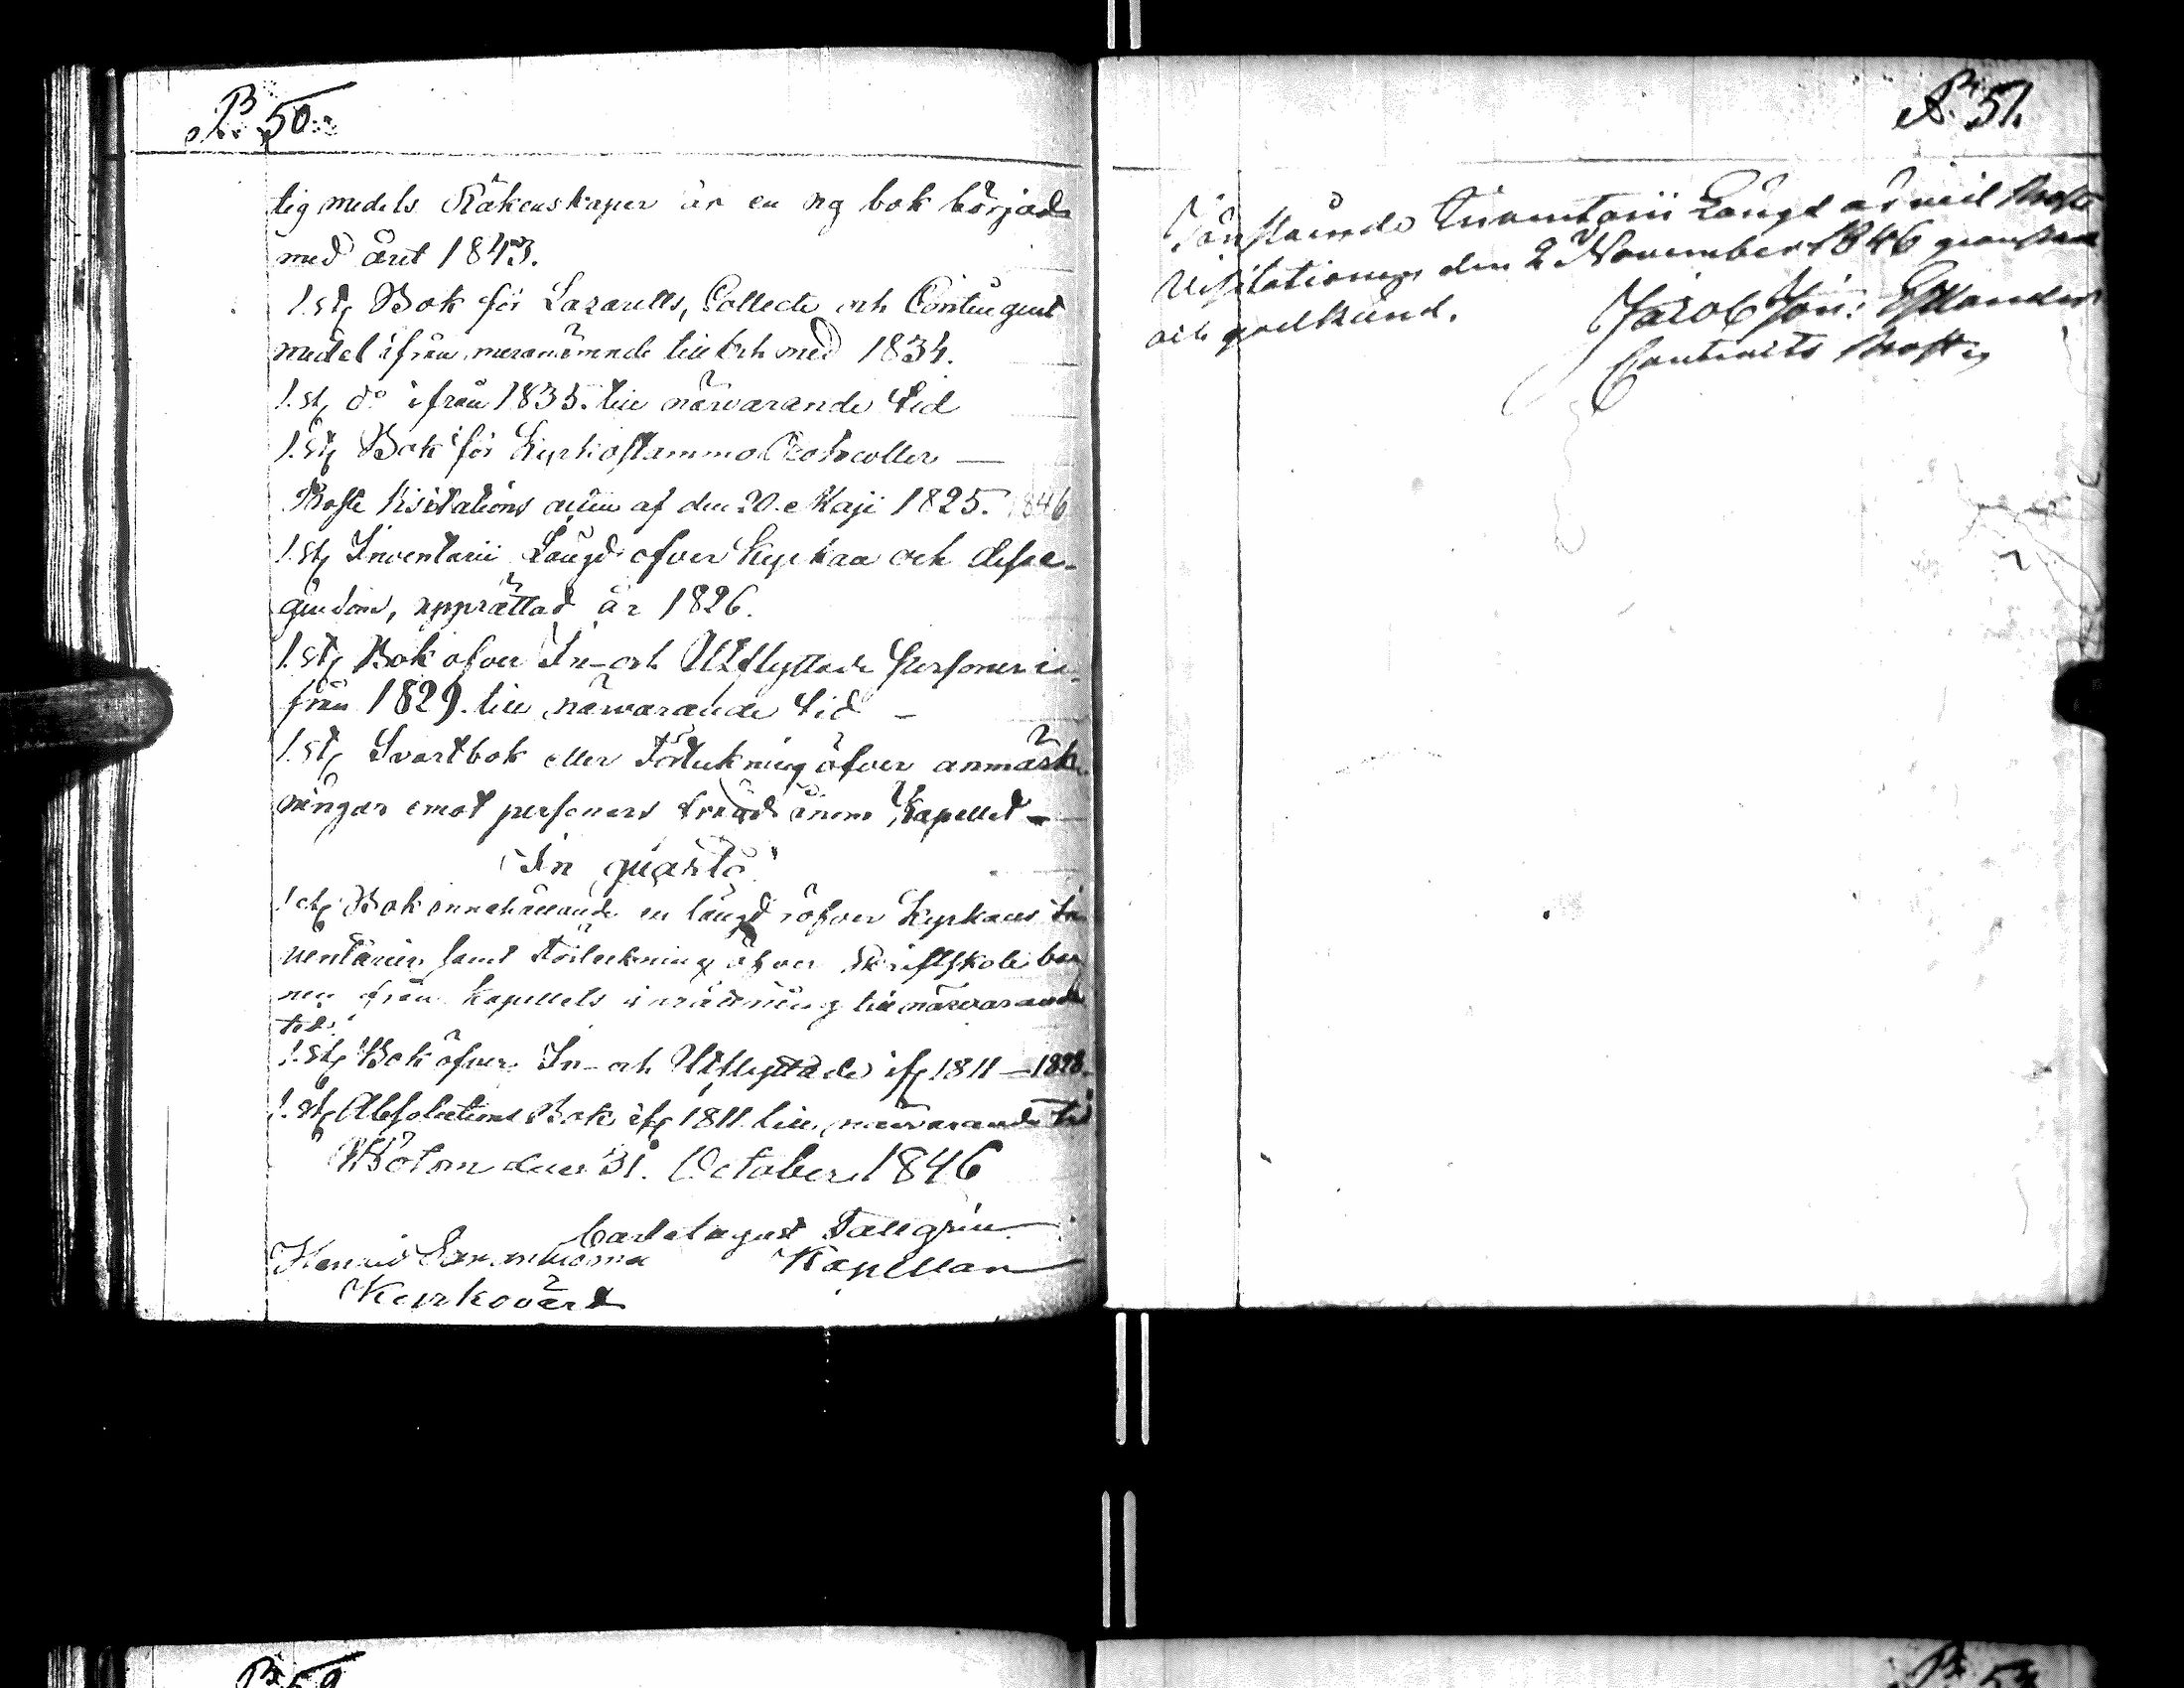 P. 50.
tig medels Räkenskaper är en ny bok börjad
med året 1843.
1. st. Bok för Lazaretts, Collecte och Contingent
medel ifrån meranämnde till och med 1834.
1. st. do ifrån 1835. till närvarande tid
1. st. Bok för Kyrkostämmo Protocoller —
Proste Visitations acten af den 20. Maji 1825. 1846
1. st. Inventarii Längd öfver Kyrkan och dess e-
gendom, upprättad år 1826.
1. st. Bok öfver In- och Utflyttade Personer i-
från 1829. till närvarande tid —
1. st. Svartbok eller Förteckning öfver anmärk-
ningar emot personers frägd inom Kapellet —
In quarto
1 st. Bok innehållande en längd öfver Kyrkans In
ventarier samt förteckning öfver Skriftskole bar
nen från Kapellets inrättning till närvarande
tid.
1. st. Bok öfver In- och Utflyttade ifr. 1811 — 1828.
1. st. Absolutions Bok ifr. 1811 till närvarande tid
Wötom den 31. October 1846
Carl August Tallgren
Henric
Kapellan
Kyrkovärd
P. 51.
Förestående Inventarii Längd är vid Proste
Visitationen den 2 November 1846 granskad
och godkänd.
Jacob Joh:
Contracts Prost
P. 53